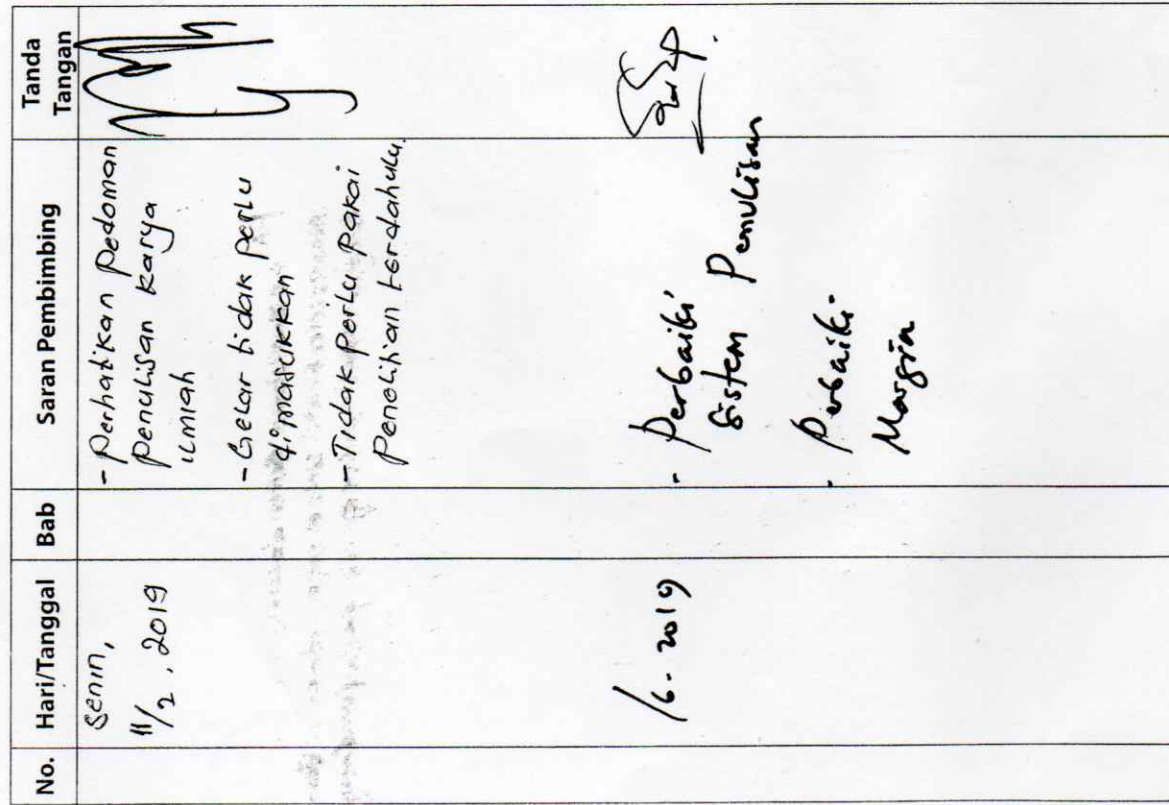 No. Hari/Tanggal Bab Saran Pembimbing Tanda Tangan
Senin,
11/2, 2019
- Perhatikan Pedoman
Penulisan karya
ilmiah
- Gelar tidak perlu
dimasukkan
- Tidak perlu pakai
Penelitian terdahulu
/6 - 2019
- Perbaiki
Sistem Penulisan
- Perbaiki
Margin